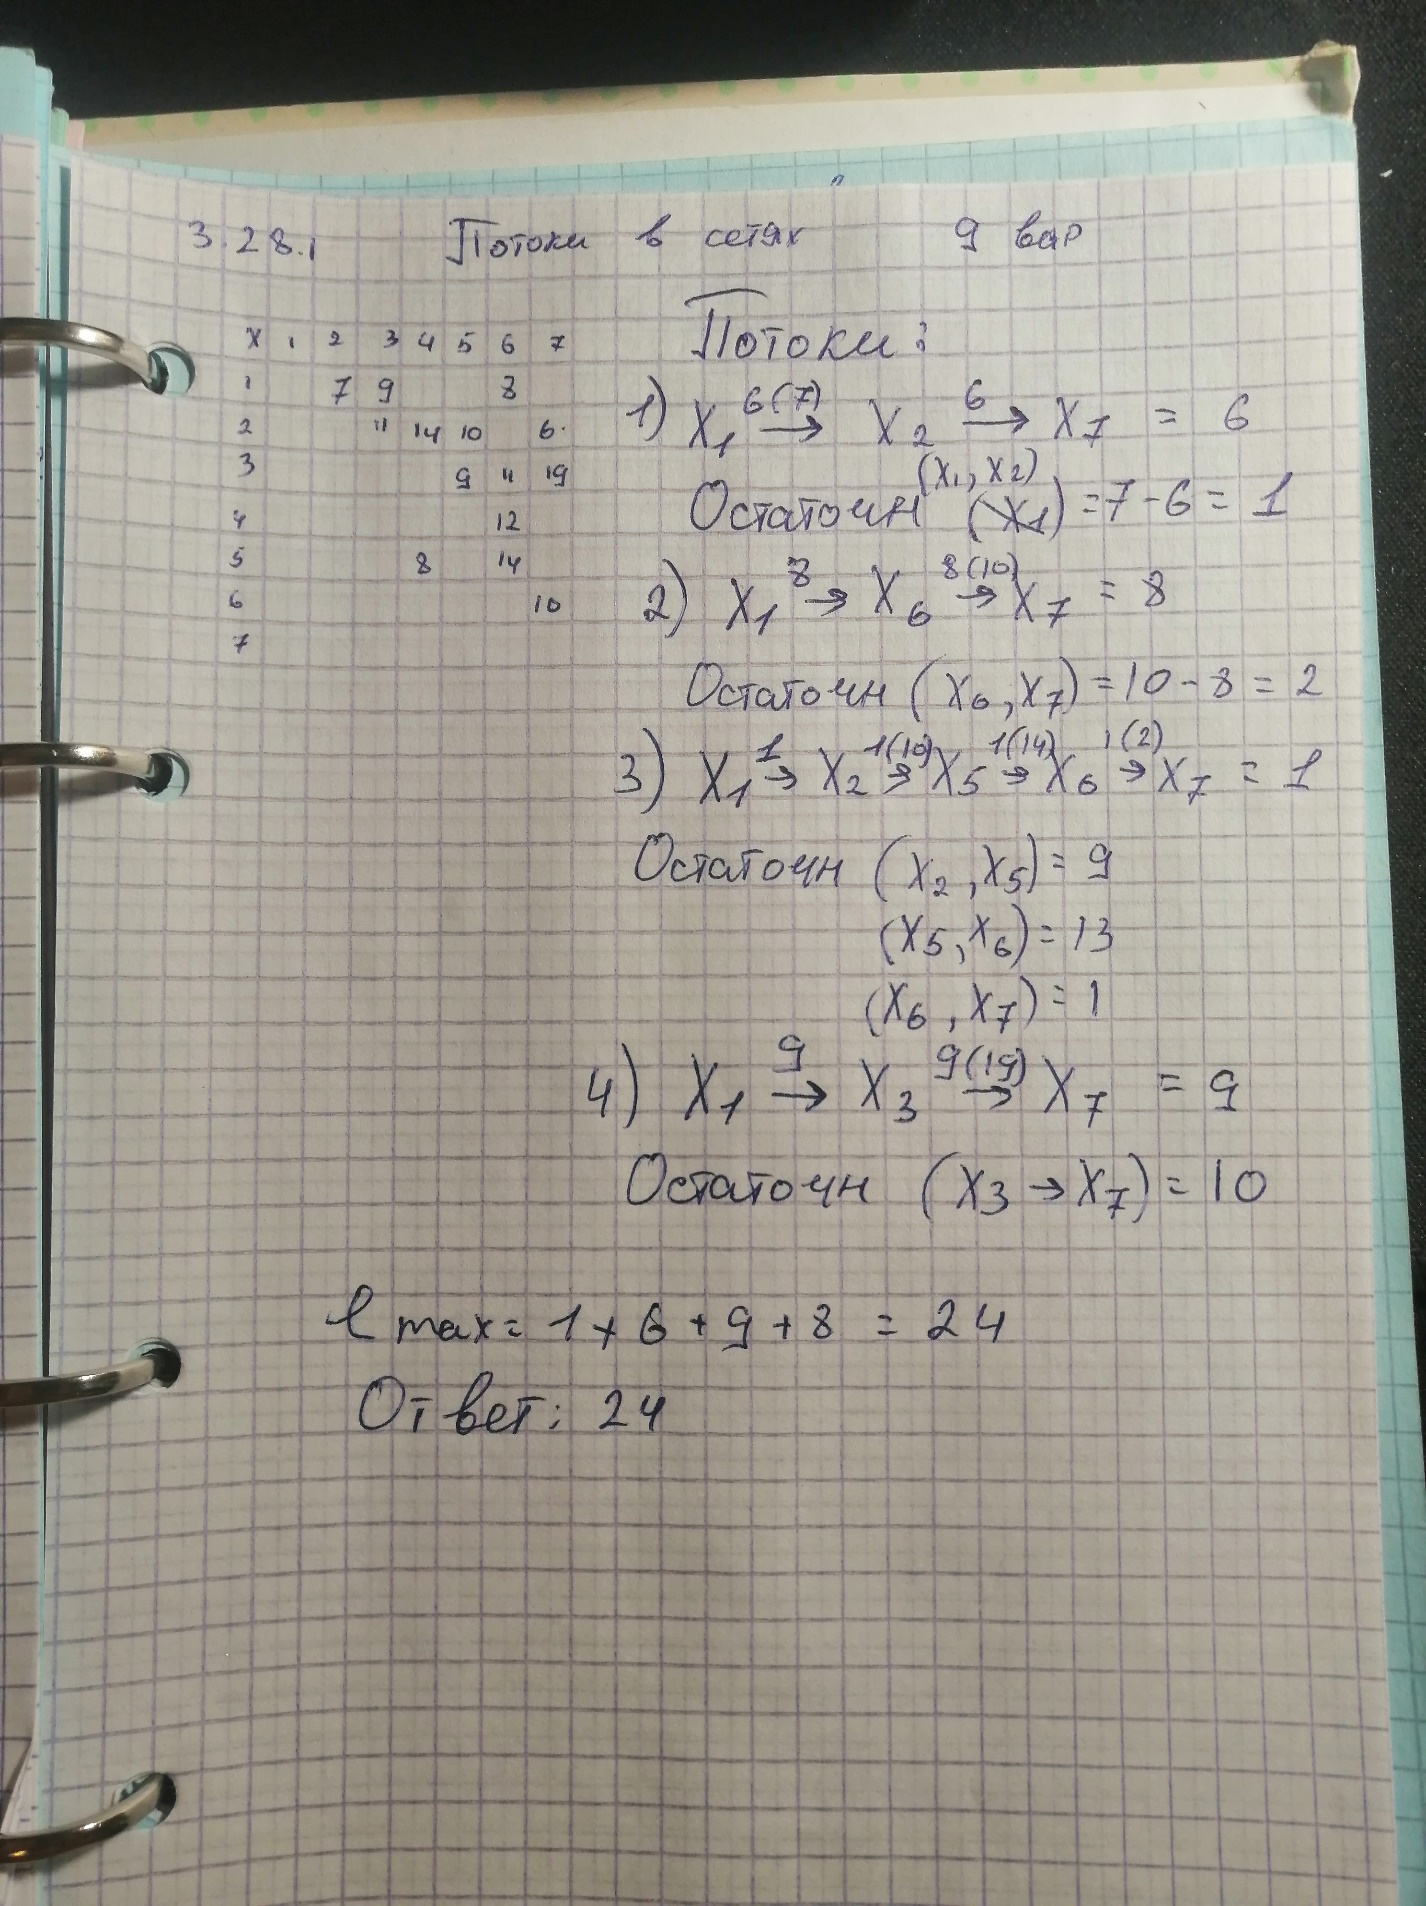 3.28.1 Потоки в сетях 9 вар
X 1 2 3 4 5 6 7
1 7 9 8
2 11 14 10 6
3 9 11 19
4 12
5 8 14
6 10
7
Потоки:
1) X1 6(7)→ X2 6→ X7 = 6
Остаточн (X1, X2) = 7-6 = 1
2) X1 8→ X6 8(10)→ X7 = 8
Остаточн (X6, X7) = 10-8 = 2
3) X1 1→ X2 1(10)→ X5 1(14)→ X6 1(2)→ X7 = 1
Остаточн (X2, X5) = 9
(X5, X6) = 13
(X6, X7) = 1
4) X1 9→ X3 9(19)→ X7 = 9
Остаточн (X3 → X7) = 10
l max = 1+6+9+8 = 24
Ответ: 24